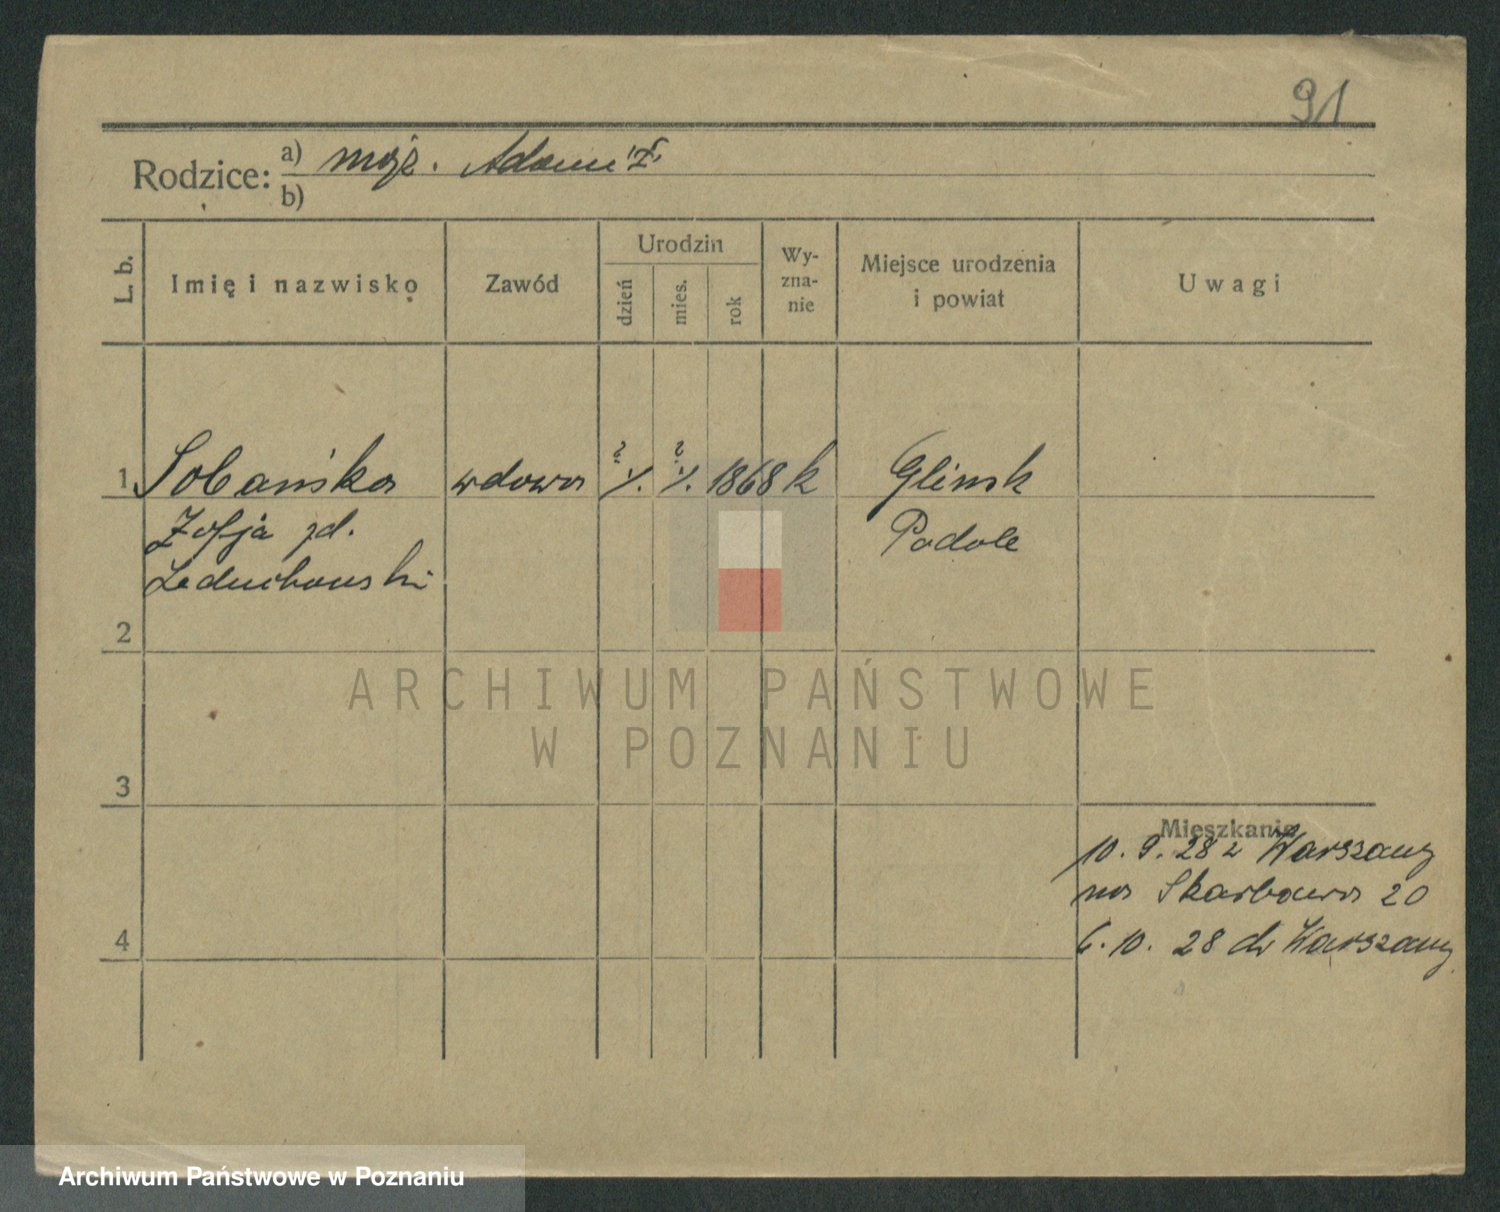 91
Rodzice: a) męż. Adam "Z"
b)
L. b. Imię i nazwisko Zawód Urodzin dzień mies. rok Wy-zna-nie Miejsce urodzenia i powiat Uwagi
1 Sobańska wdowa ? ? 1868 k Glinsk
Zofja zd. Podole
Leduchowski
2
ARCHIWUM PAŃSTWOWE
W POZNANIU
3
Mieszkanie
10. 9. 28 z Warszawy
na Skarbowa 20
4
6. 10. 28 do Warszawy
Archiwum Państwowe w Poznaniu